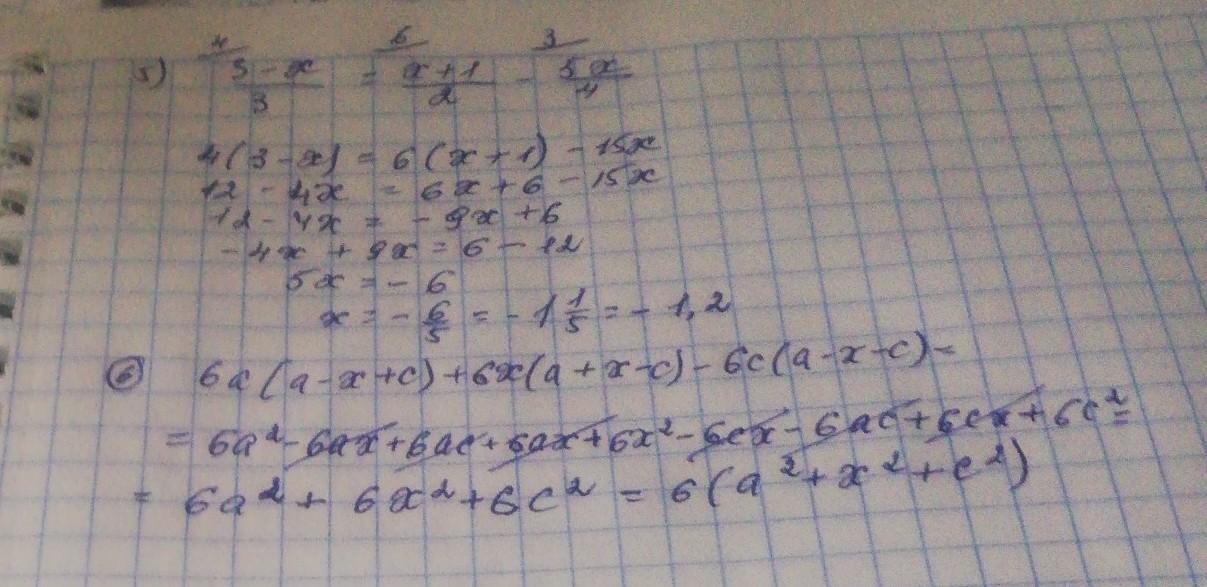 4 6 3
5) 3-x/3 = x+1/2 - 5x/4
4(3-x) = 6(x+1) - 15x
12 - 4x = 6x+6 - 15x
12 - 4x = - 9x +6
-4x + 9x = 6 - 12
5x = - 6
x = - 6/5 = - 1 1/5 = - 1,2
⑥ 6a(a-x+c)+6x(a+x-c)-6c(a-x-c)=
= 6a²-6ax+6ac+6ax+6x²-6cx-6ac+6cx+6c²=
= 6a²+ 6x²+6c² = 6(a²+x²+c²)